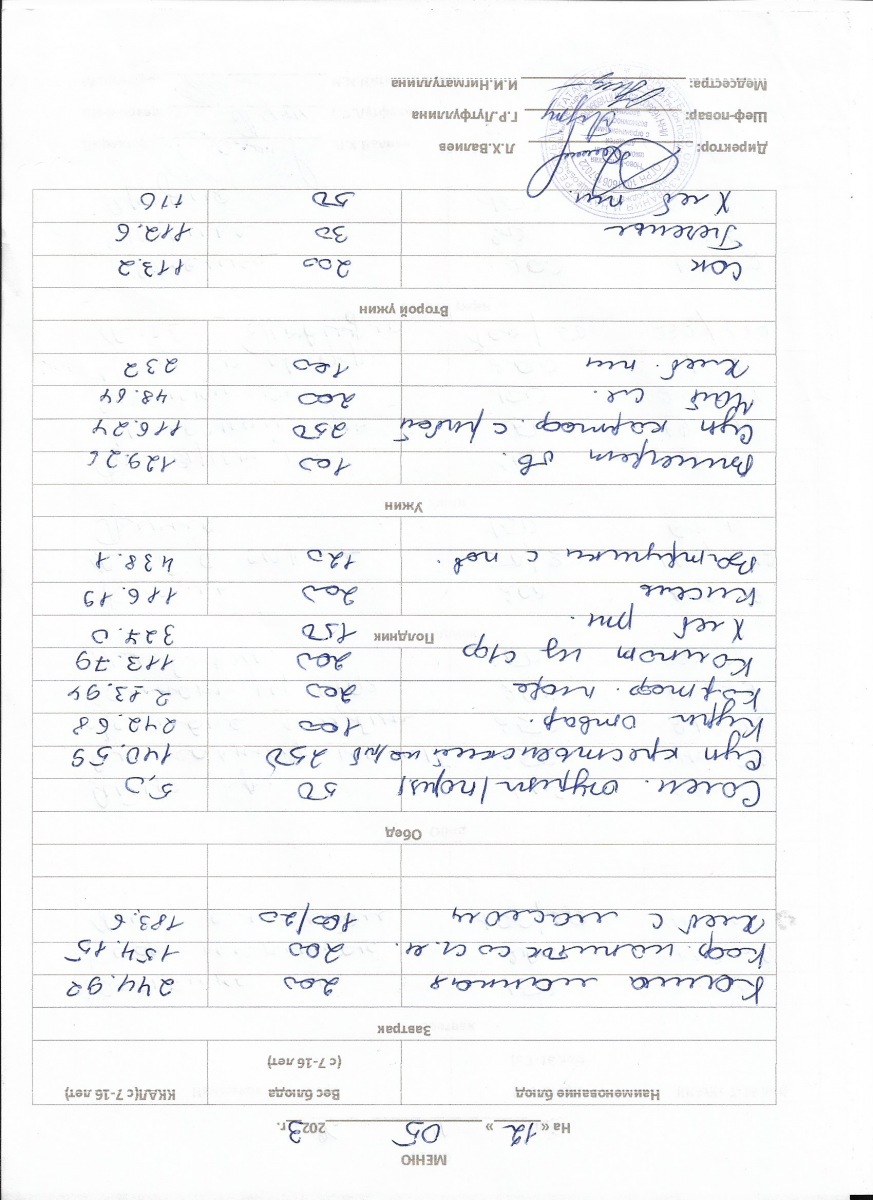 МЕНЮ
На « 12 » 05 2023г.
Наименование блюд Вес блюда (с 7-16 лет) ККАЛ(с 7-16 лет)
Завтрак
Каша манная 200 244.92
Коф. напиток со сг. м. 200 154.15
Хлеб с маслом 100/20 183,6
Обед
Солен. огурцы /порц/ 50 5,0
Суп крестьянский на м/б 250 140.59
Куры отвар. 100 242.68
Картоф. пюре 200 213.94
Компот из с/ф 200 113.79
Хлеб рж. 150 327.0
Полдник
Кисель 200 116.19
Ватрушки с пов. 120 438.1
Ужин
Винегрет ов. 100 129.26
Суп картоф. с рыбой 250 116.24
Чай сл. 200 48.64
Хлеб. пш 100 232
Второй ужин
Сок 200 113.2
Печенье 30 112.6
Хлеб пш. 50 116
Директор: Л.Х.Валиев
Шеф-повар: Г.Р.Лутфуллина
Медсестра: И.И.Нигматуллина